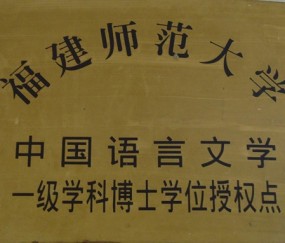 福建师范大学
中国语言文学
一级学科博士学位授权点